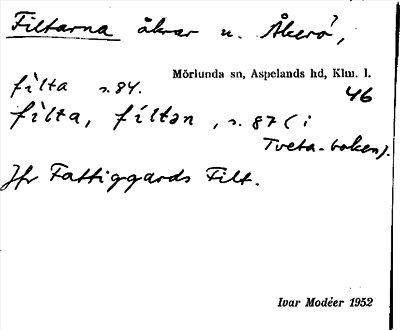 Filtarna åkrar u. Åkerö,
Mörlunda sn, Aspelands hd, Klm. l.
filta s. 84.
46
filta, filtən, s. 87 (i
Tveta-boken).
Jfr Fattiggårds Filt.
Ivar Modéer 1952